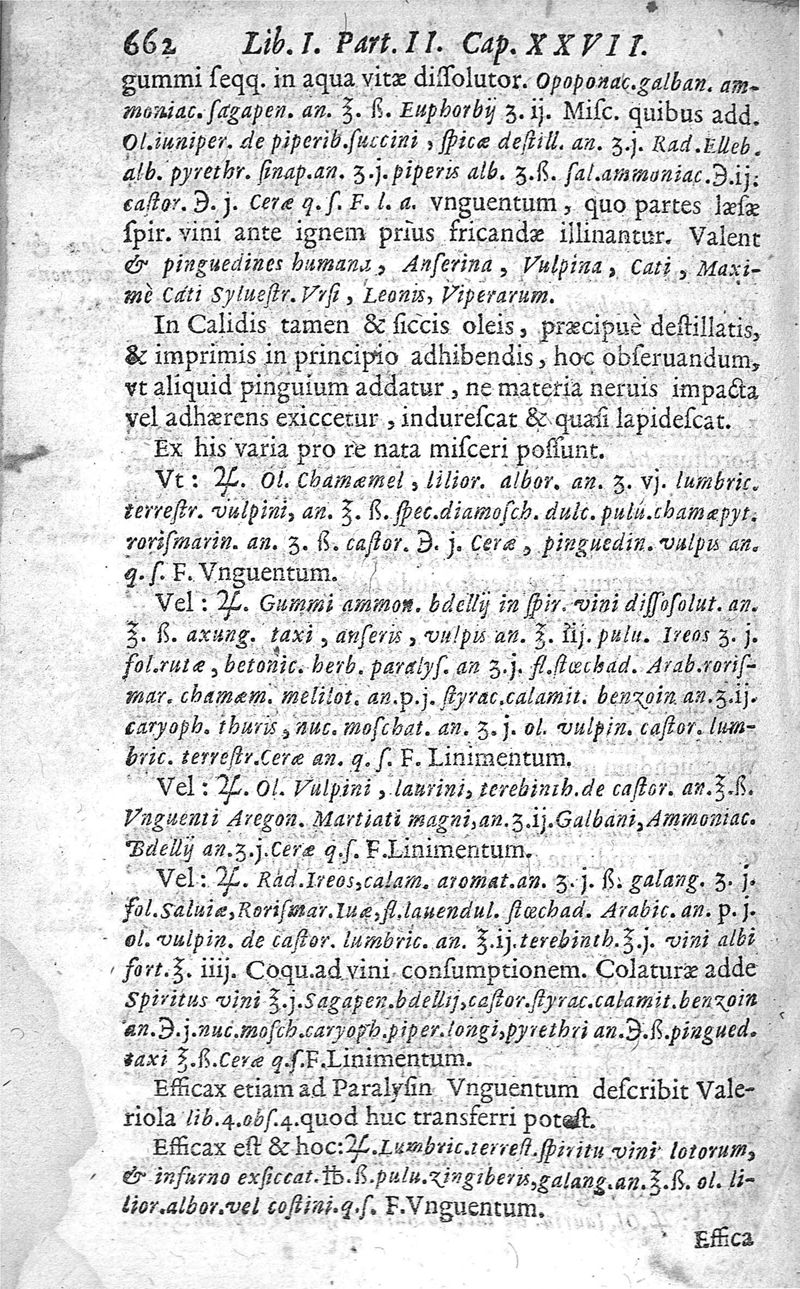 662 Lib. I. Part. II. Cap. XXVII.
gummi ſeqq. in aqua vitæ diſſolutor. Opoponac. galban. am-
moniac. ſagapen. an. ℥. ß. Euphorbij ʒ. ij. Miſc. quibus add.
Ol. iuniper. de piperib. ſuccini, ſpicæ deſtill. an. ʒ. j. Rad. Elleb.
alb. pyrethr. ſinap. an. ʒ. j. piperis alb. ʒ. ß. ſal. ammoniac. ℈. ij.
caſtor. ℈. j. Ceræ q. ſ. F. l. a. vnguentum, quo partes læſæ
ſpir. vini ante ignem priùs fricandæ illinantur. Valent
& pinguedines humana, Anſerina, Vulpina, Cati, Maxi-
mè Cati Sylueſtr. Vrſi, Leonis, Viperarum.
In Calidis tamen & ſiccis oleis, præcipuè deſtillatis,
& imprimis in principio adhibendis, hoc obſeruandum,
vt aliquid pinguium addatur, ne materia neruis impacta
vel adhærens exiccetur, indureſcat & quaſi lapideſcat.
Ex his varia pro re nata miſceri poſſunt.
Vt: ℞. Ol. Chamæmel, lilior. albor. an. ʒ. vj. lumbric.
terreſtr. vulpini, an. ℥. ß. ſpec. diamoſch. dulc. pulu. chamæpyt.
roriſmarin. an. ʒ. ß. caſtor. ℈. j. Ceræ, pinguedin. vulpis an.
q. ſ. F. Vnguentum.
Vel: ℞. Gummi ammon. bdellij in ſpir. vini diſſoſolut. an.
℥. ß. axung. taxi, anſeris, vulpis an. ℥. iij. pulu. Ireos ʒ. j.
fol. rutæ, betonic. herb. paralyſ. an ʒ. j. fl. ſtœchad. Arab. roriſ-
mar. chamæm. melilot. an. p. j. ſtyrac. calamit. benzoin an. ʒ. ij.
caryoph. thuris, nuc. moſchat. an. ʒ. j. ol. vulpin. caſtor. lum-
bric. terreſtr. Ceræ an. q. ſ. F. Linimentum.
Vel: ℞. Ol. Vulpini, laurini, terebinth. de caſtor. an. ℥. ß.
Vnguenti Aregon. Martiati magni, an. ʒ. ij. Galbani, Ammoniac.
Bdellij an. ʒ. j. Ceræ q. ſ. F. Linimentum.
Vel: ℞. Rad. Ireos, calam. aromat. an. ʒ. j. ß. galang. ʒ. j.
fol. Saluiæ, Roriſmar. Iuæ, fl. lauendul. ſtœchad. Arabic. an. p. j.
ol. vulpin. de caſtor. lumbric. an. ℥. ij. terebinth. ℥. j. vini albi
fort. ℥. iiij. Coqu. ad vini conſumptionem. Colaturæ adde
Spiritus vini ℥. j. Sagapen. bdellij, caſtor. ſtyrac. calamit. benzoin
an. ℈. j. nuc. moſch. caryoph. piper. longi, pyrethri an. ℈. ß. pingued.
taxi ℥. ß. Ceræ q. ſ. F. Linimentum.
Efficax etiam ad Paralyſin Vnguentum deſcribit Vale-
riola lib. 4. obſ. 4. quod huc transferri poteſt.
Efficax eſt & hoc: ℞. Lumbric. terreſt. ſpiritu vini lotorum,
& in furno exſiccat. ℔. ß. pulu. zingiberis, galang. an. ℥. ß. ol. li-
lior. albor. vel coſtini. q. ſ. F. Vnguentum.
Effica